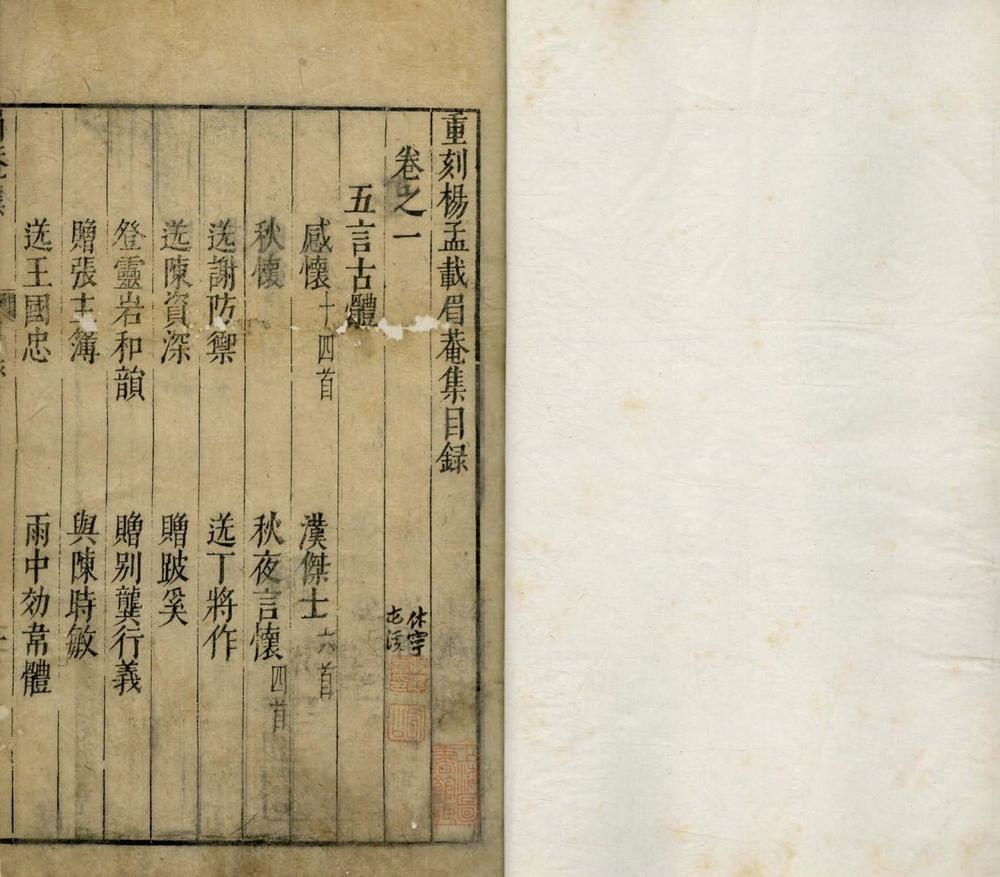 重刻楊孟載眉菴集目録
卷之一
五言古體
感懷十四首 漢傑士六首
秋懷 秋夜言懷四首
送謝防禦 送丁將作
送陳資深 贈跛奚
登靈岩和韻 贈别龔行義
贈張主簿 與陳時敏
送王國忠 雨中効韋體
休寧
屯溪